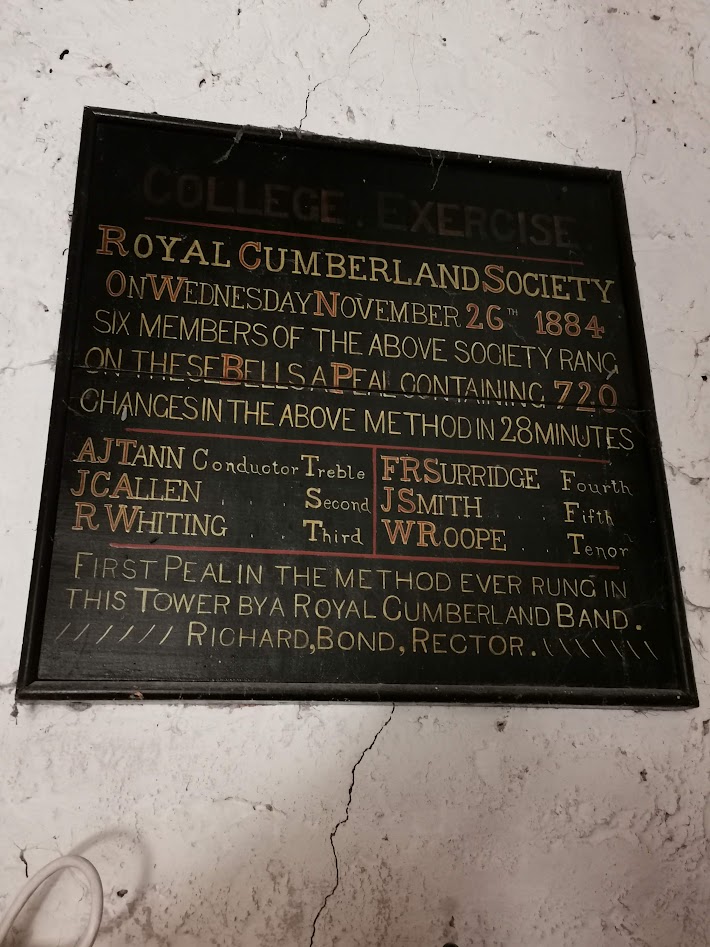 COLLEGE EXERCISE
ROYAL CUMBERLAND SOCIETY
ON WEDNESDAY NOVEMBER 26TH 1884
SIX MEMBERS OF THE ABOVE SOCIETY RANG
ON THESE BELLS A PEAL CONTAINING 720
CHANGES IN THE ABOVE METHOD IN 28 MINUTES
A J TANN Conductor Treble
J C ALLEN . . Second
R WHITING . . Third
F R SURRIDGE Fourth
J SMITH . . Fifth
W ROOPE . . Tenor
FIRST PEAL IN THE METHOD EVER RUNG IN
THIS TOWER BY A ROYAL CUMBERLAND BAND.
RICHARD, BOND, RECTOR.